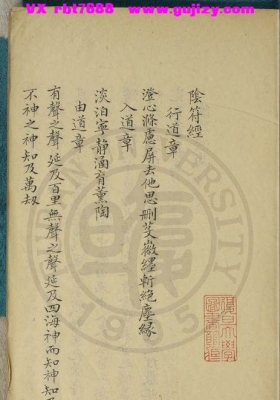 VX rbt7888 www.gujizy.com
陰符經
行道章
澄心滌慮屏去他思刪芟徽纆斬絕塵緣
入道章
淡泊寧靜涵育薰陶
由道章
有聲之聲延及百里無聲之聲延及四海神而知神知及
不神之神知及萬劫